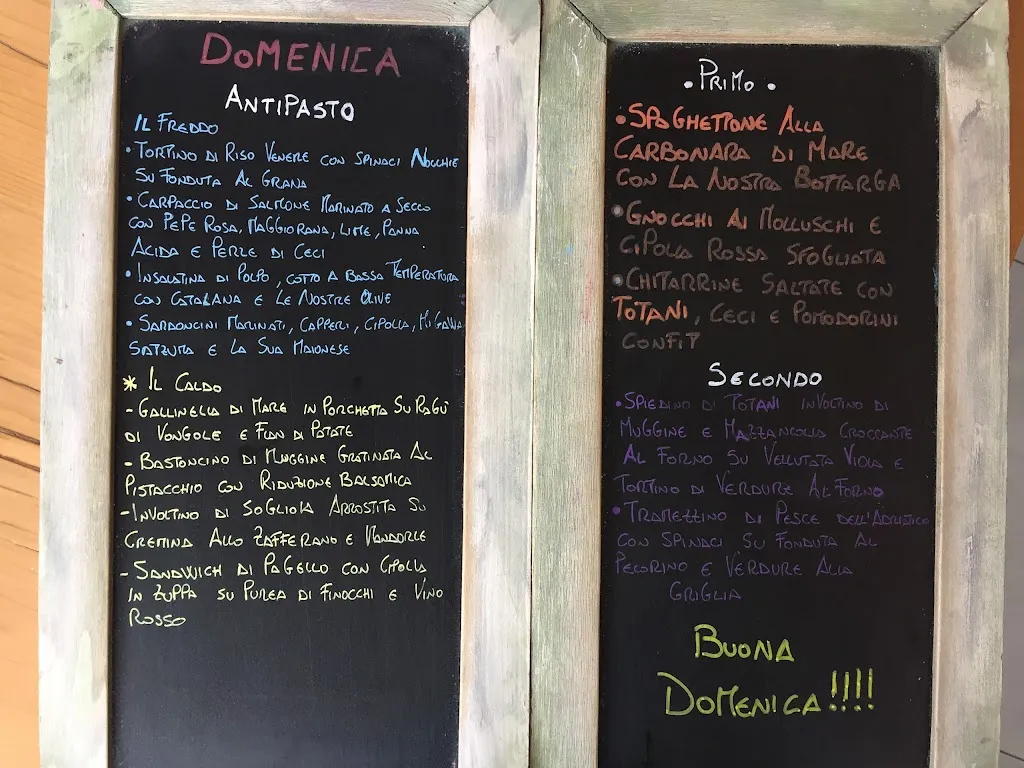 DOMENICA
ANTIPASTO
IL FREDDO
• TORTINO DI RISO VENERE CON SPINACI NOCCHIE
SU FONDUTA AL GRANA
• CARPACCIO DI SALMONE MARINATO A SECCO
CON PEPE ROSA, MAGGIORANA, LIME, PANNA
ACIDA E PERLE DI CECI
• INSALATINA DI POLPO, COTTO A BASSA TEMPERATURA
CON CATALANA E LE NOSTRE OLIVE
• SARDONCINI MARINATI, CAPPERI, CIPOLLA,
E LA SUA MAIONESE
* IL CALDO
- GALLINELLA DI MARE IN PORCHETTA SU RAGÙ
DI VONGOLE E FLAN DI PATATE
- BASTONCINO DI MUGGINE GRATINATA AL
PISTACCHIO CON RIDUZIONE BALSAMICA
- INVOLTINO DI SOGLIOLA ARROSTITA SU
CREMINA ALLO ZAFFERANO E MANDORLE
- SANDWICH DI PAGELLO CON CIPOLLA
IN ZUPPA SU PUREA DI FINOCCHI E VINO
ROSSO
• PRIMO •
• SPAGHETTONE ALLA
CARBONARA DI MARE
CON LA NOSTRA BOTTARGA
• GNOCCHI AI MOLLUSCHI E
CIPOLLA ROSSA SFOGLIATA
• CHITARRINE SALTATE CON
TOTANI, CECI E POMODORINI
CONFIT
SECONDO
• SPIEDINO DI TOTANI INVOLTINO DI
MUGGINE E MAZZANCOLLA CROCCANTE
AL FORNO SU VELLUTATA VIOLA E
TORTINO DI VERDURE AL FORNO
• TRAMEZZINO DI PESCE DELL'ADRIATICO
CON SPINACI SU FONDUTA AL
PECORINO E VERDURE ALLA
GRIGLIA
BUONA
DOMENICA!!!!